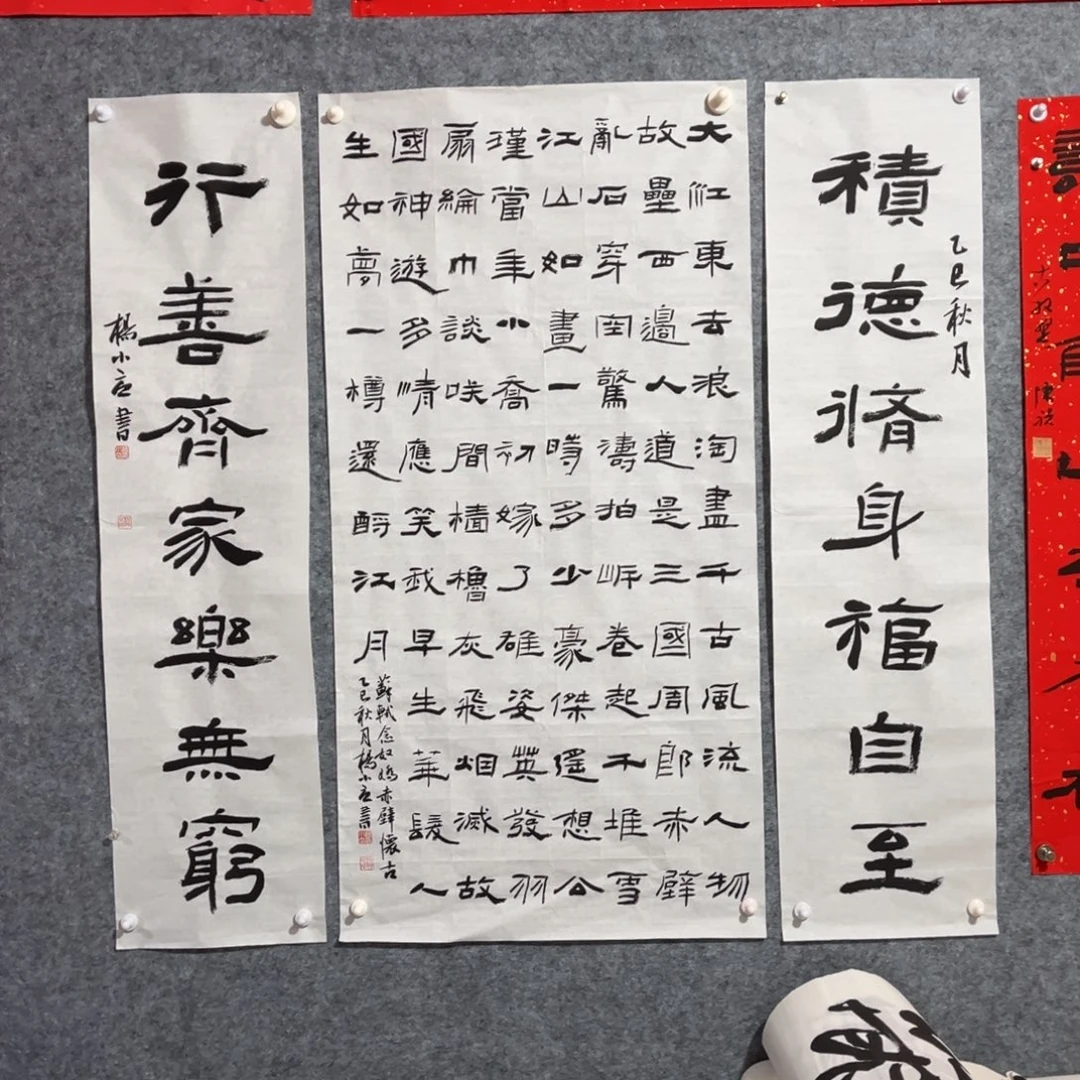 乙巳秋月
積德脩身福自至
大江東去浪淘盡千古風流人物
故壘西邊人道是三國周郎赤壁
亂石穿空驚濤拍岸卷起千堆雪
江山如畫一時多少豪傑遥想公
瑾當年小喬初嫁了雄姿英發羽
扇綸巾談咲間檣櫓灰飛烟滅故
國神遊多情應笑我早生華髮人
生如夢一樽還酹江月
蘇軾念奴嬌赤壁懷古
乙巳秋月楊小書
行善齊家樂無窮
楊小書